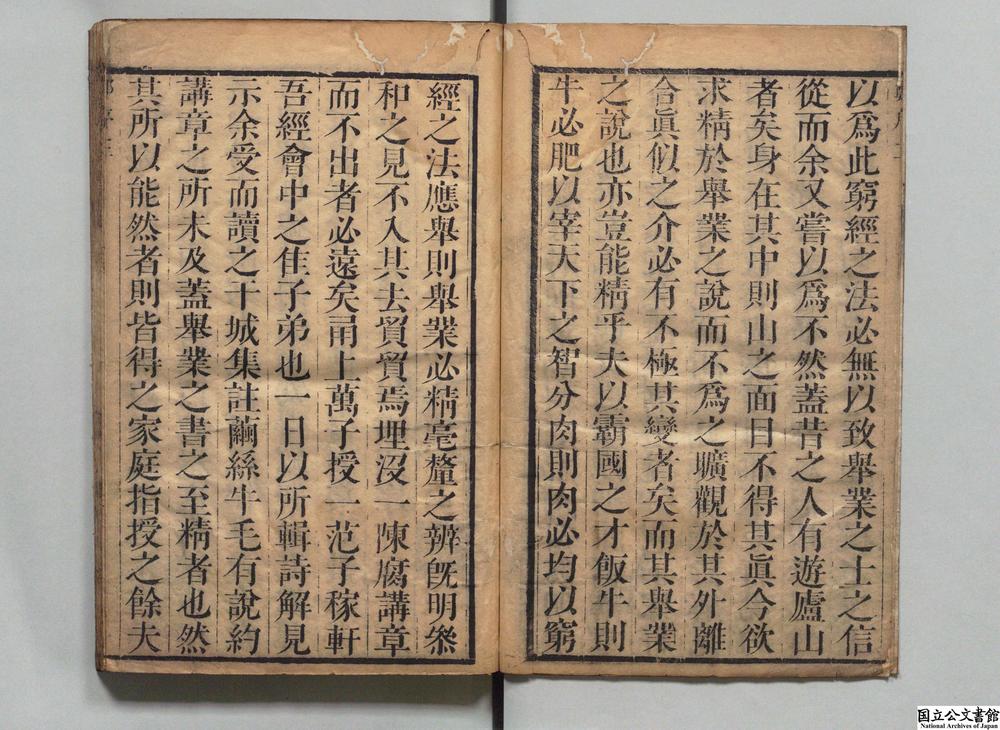 以爲此窮經之法必無以致舉業之士之信
從而余又嘗以爲不然蓋昔之人有遊廬山
者矣身在其中則山之面目不得其眞今欲
求精於舉業之說而不爲之曠觀於其外離
合眞似之介必有不極其變者矣而其舉業
之說也亦豈能精乎夫以霸國之才飯牛則
牛必肥以宰天下之智分肉則肉必均以窮
經之法應舉則舉業必精毫釐之辨旣明叅
和之見不入其去貿貿焉埋沒一陳腐講章
而不出者必遠矣甬上萬子授一范子稼軒
吾經會中之佳子弟也一日以所輯詩解見
示余受而讀之干城集註繭絲牛毛有說約
講章之所未及蓋舉業之書之至精者也然
其所以能然者則皆得之家庭指授之餘夫
国立公文書館
National Archives of Japan